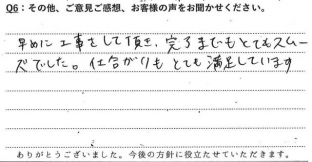 Q6：その他、ご意見ご感想、お客様の声をお聞かせください。
早めに工事をして頂き、完了までもとてもスムー
ズでした。仕合がりもとても満足しています
ありがとうございました。今後の方針に役立たせていただきます。